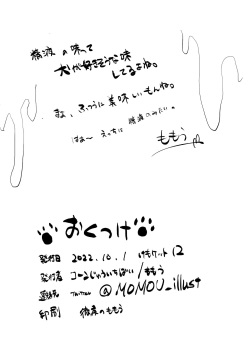 精液の味って
犬が好きそうな味
してるよね。
まぁ、ふつうに美味しいもんね。
はぁ〜 えっちに 精液のみたい。
ももう
おくつけ
発行日 2022.10.1 けもケット12
発行者 こーるじゅういちばい/ももう
連絡先 Twitter @MOMOU_illust
印刷 彼素のももう